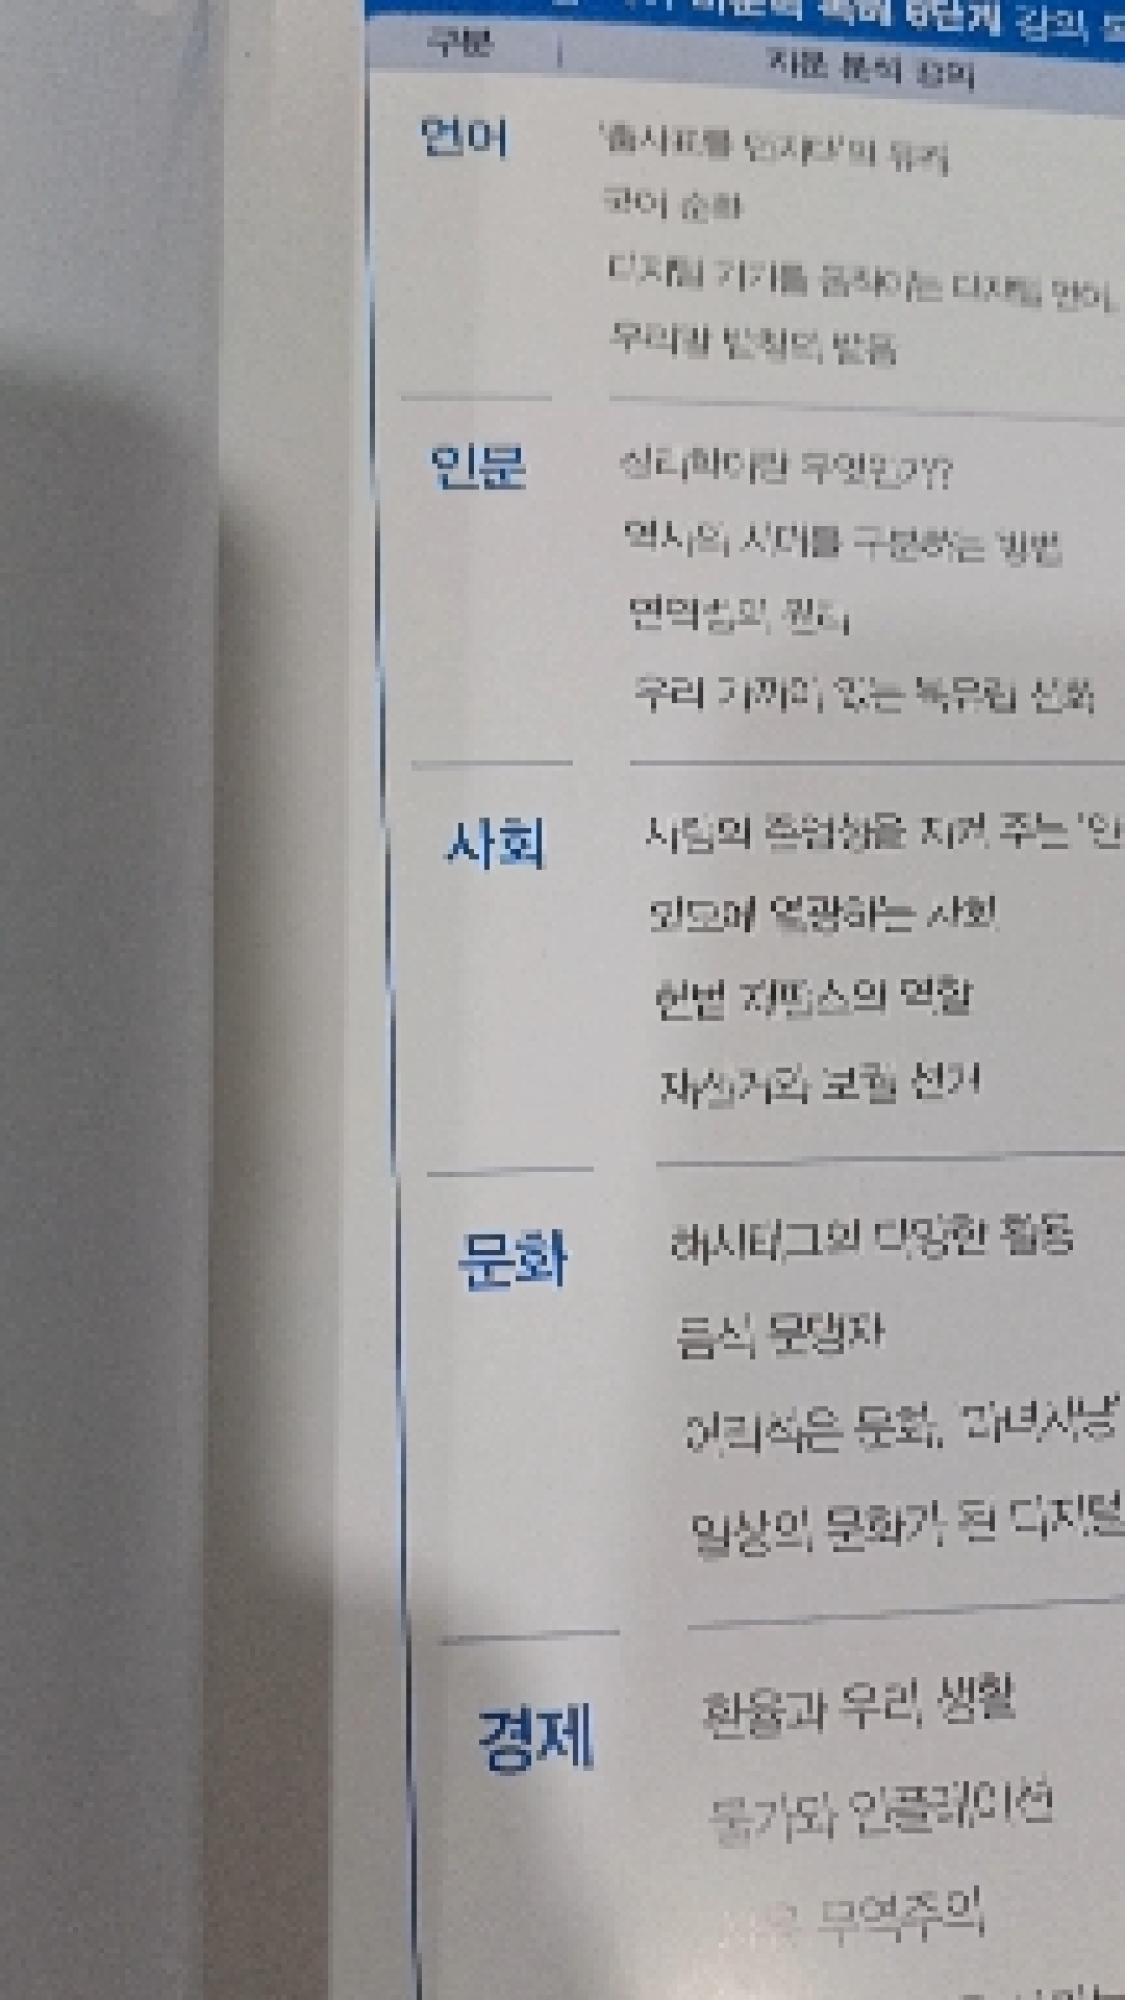 비문학 독해 6단계 강의
구분 지문 분석 강의
언어 '출사표를 던지다'의 유래
국어 순화
디지털 기기를 움직이는 디지털 언어
우리말 받침의 발음
인문 심리학이란 무엇인가?
역사의 시대를 구분하는 방법
연역법의 원리
우리 가까이 있는 북유럽 신화
사회 사람의 존엄성을 지켜 주는
외모에 열광하는 사회
헌법 재판소의 역할
재선거와 보궐 선거
문화 해시태그의 다양한 활용
음식 문맹자
어리석은 문화, '마녀사냥'
일상의 문화가 된 디지털
경제 환율과 우리 생활
물가와 인플레이션
무역주의